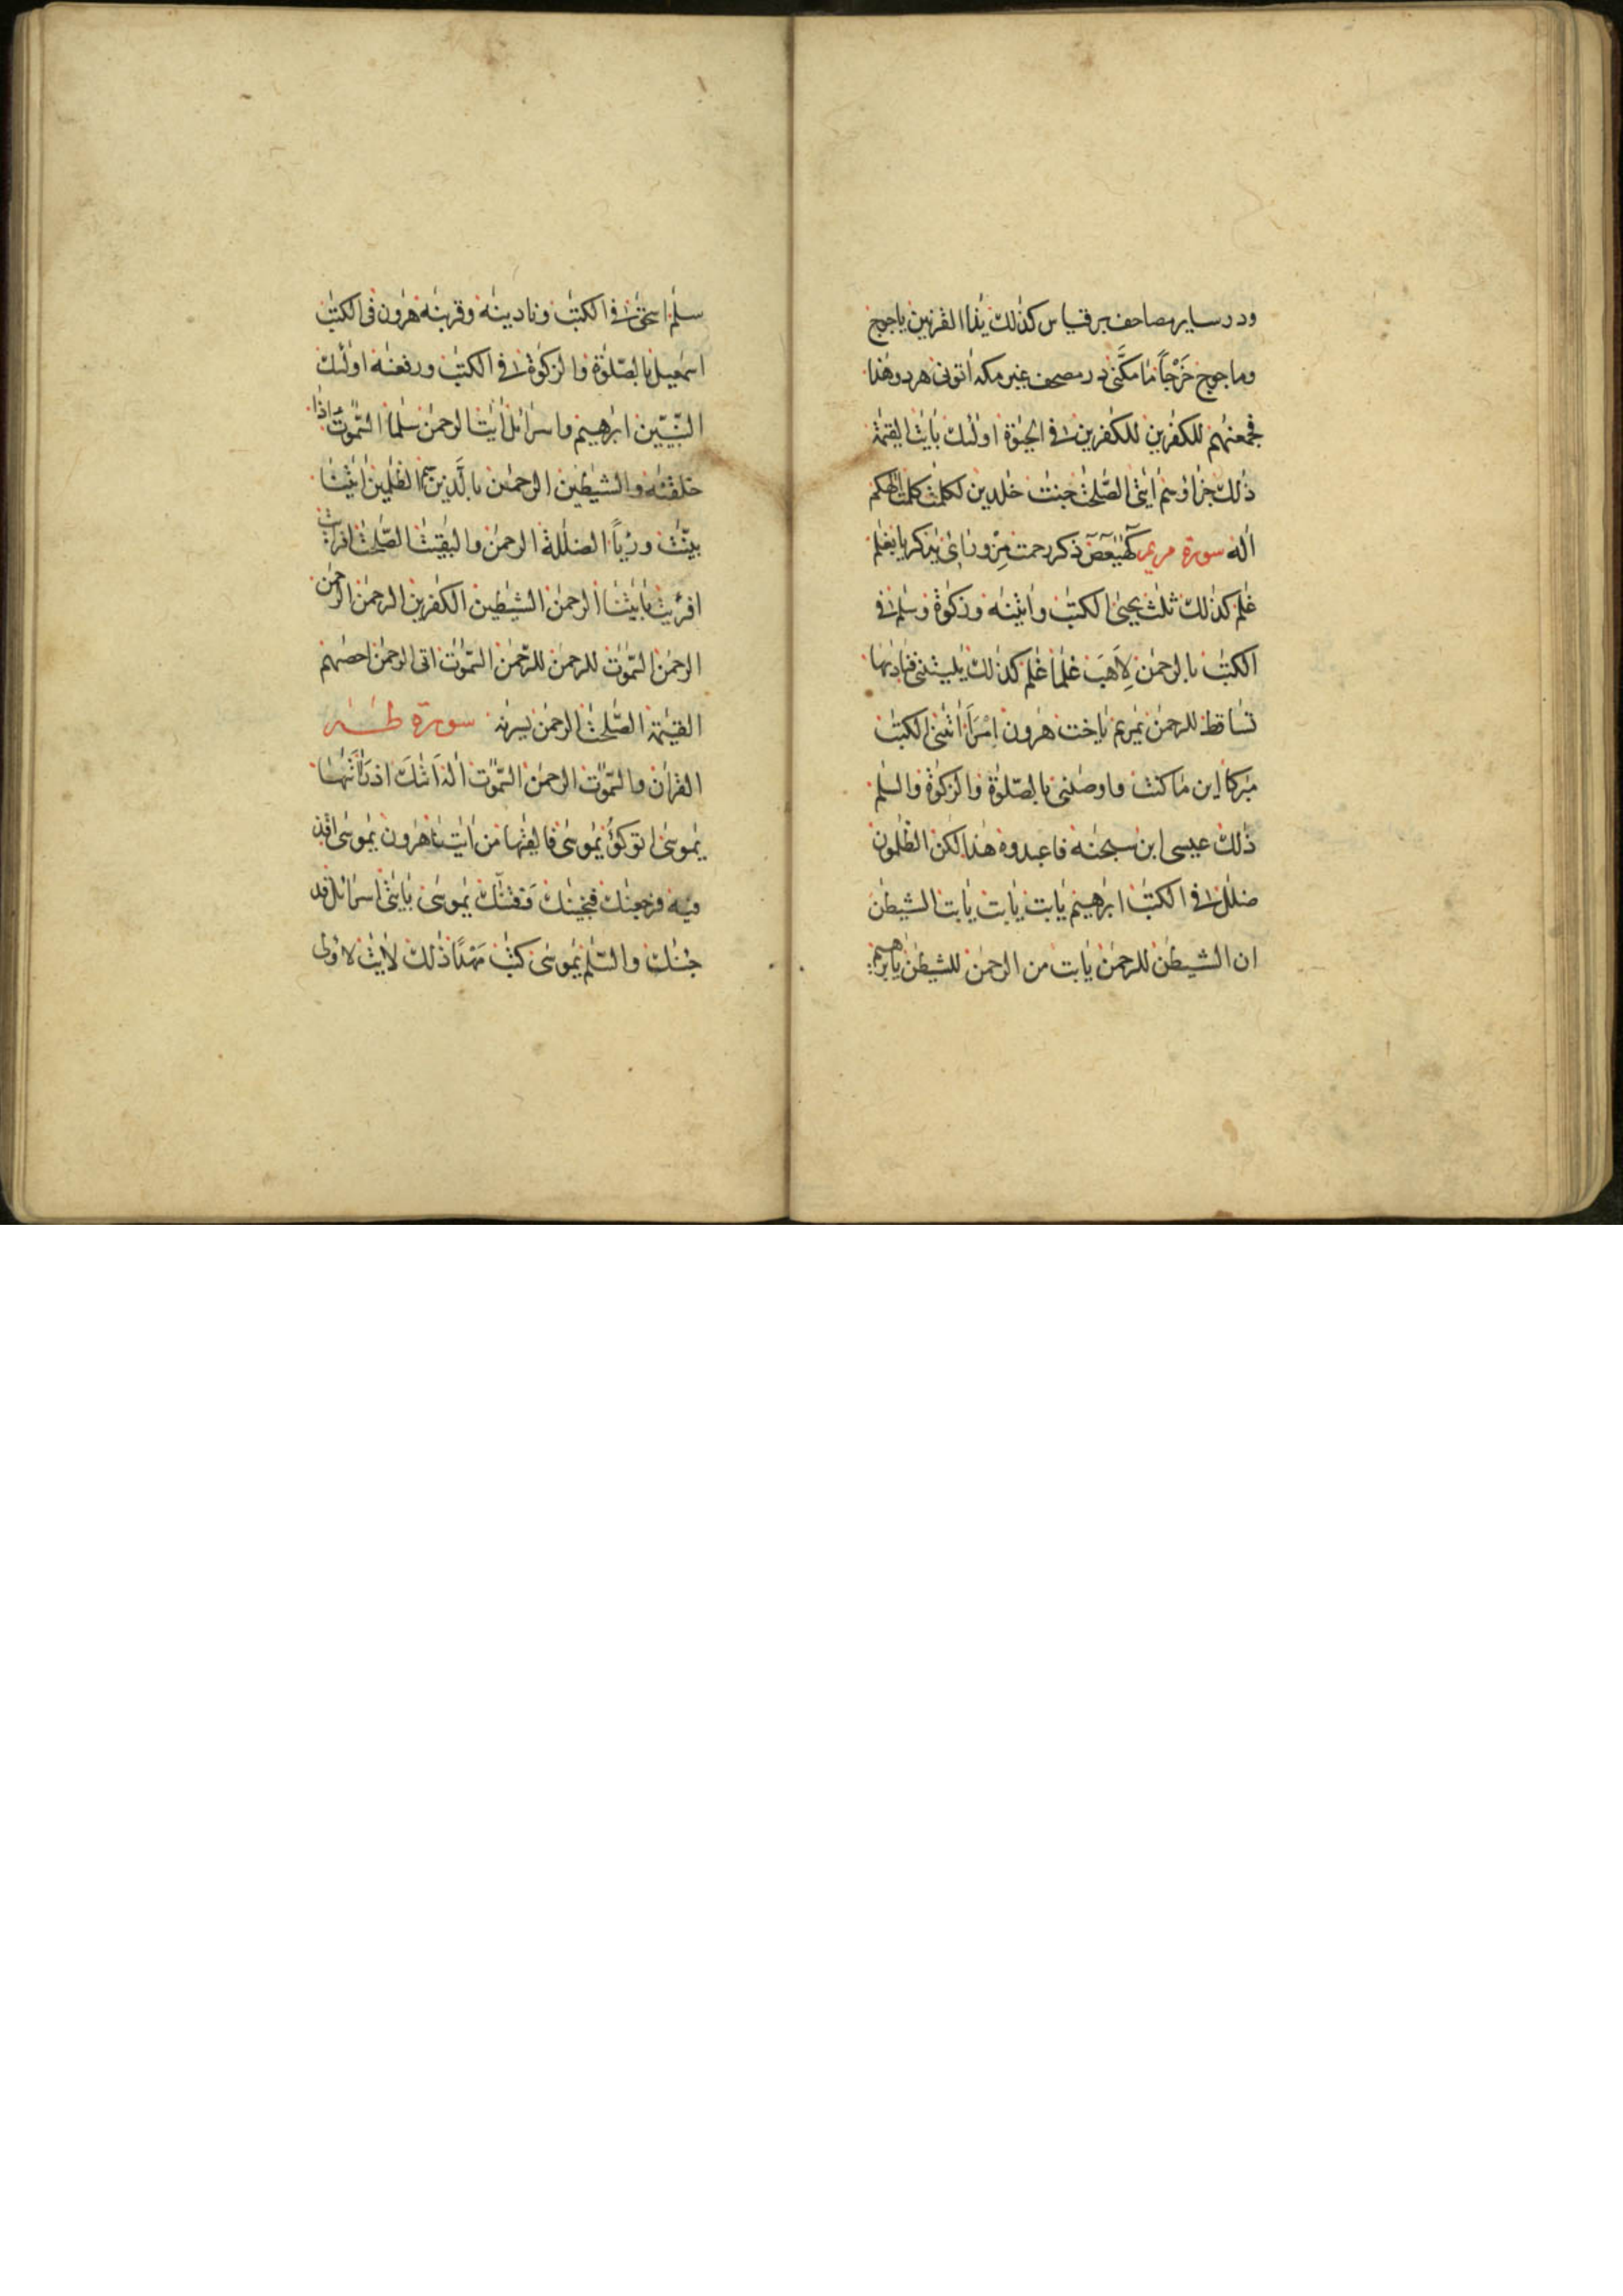 ودر سایر مصاحف بر قیاس کذلك یذا القرنین یاجوج
وماجوج خَرْجًا ما مكَّنّی در مصحف غیر مکه اتونی هر دو هذا
فجمعنهم للكفرین للكفرین فی الحیوة اولئك بایت القیمة
ذلك جزاؤهم ایتی الصّلحت جنت خلدین لكلمت كلمت الهكم
اله سورة مریم كهیعص ذكر رحمت مِنْ ورائی یزكریا بغلم
غلم كذلك ثلث ییحیی الكتب واتینه وزكوة وسلم فی
الكتب بالرحمن لِأَهَبَ غلما غلم كذلك یلیتنی فنادىها
تساقط للرحمن یمریم یاخت هرون اِمْرَأَ اتنی الكتب
مبركا این ما كنت واوصنی بالصّلوة والزكوة والسلم
ذلك عیسی ابن سبحنه فاعبدوه هذا لكن الظلمون
ضلل فی الكتب ابرهیم یابت یابت یابت الشیطن
ان الشیطن للرحمن یابت من الرحمن للشیطن یابرهیم
سلم اسحق فی الكتب ونادینه وقربنه هرون فی الكتب
اسمعیل بالصّلوة والزكوة فی الكتب ورفعنه اولئك
النّبیّین ابرهیم واسرائل ایت الرحمن سلما السّموت ءاذا
خلقنه والشیطین الرحمن بالَّذین هم الظلمین ایتنا
بیّنت ورءیاً الضللة الرحمن والبقیت الصّلحت افرایت
افرءیت بایتنا الرحمن الشیطین الكفرین الرحمن الرحمن
الرحمن السّموت للرحمن للرّحمن السّموت اتی الرحمن احصهم
القیمة الصّلحت الرحمن یسرنه سورة طه
القران والسّموت الرحمن السّموت اله اَتىكَ اذ رَأ اتىها
یموسی اتوكؤُ یموسی فالقىها من ایتنا هرون یموسی اقذ
فیه فرجعنك فنجینك وَفتنّك یموسی بایتی اسرائل قد
جئنك والسّلم یموسی كتب مَهْدًا ذلك لایت لاولی